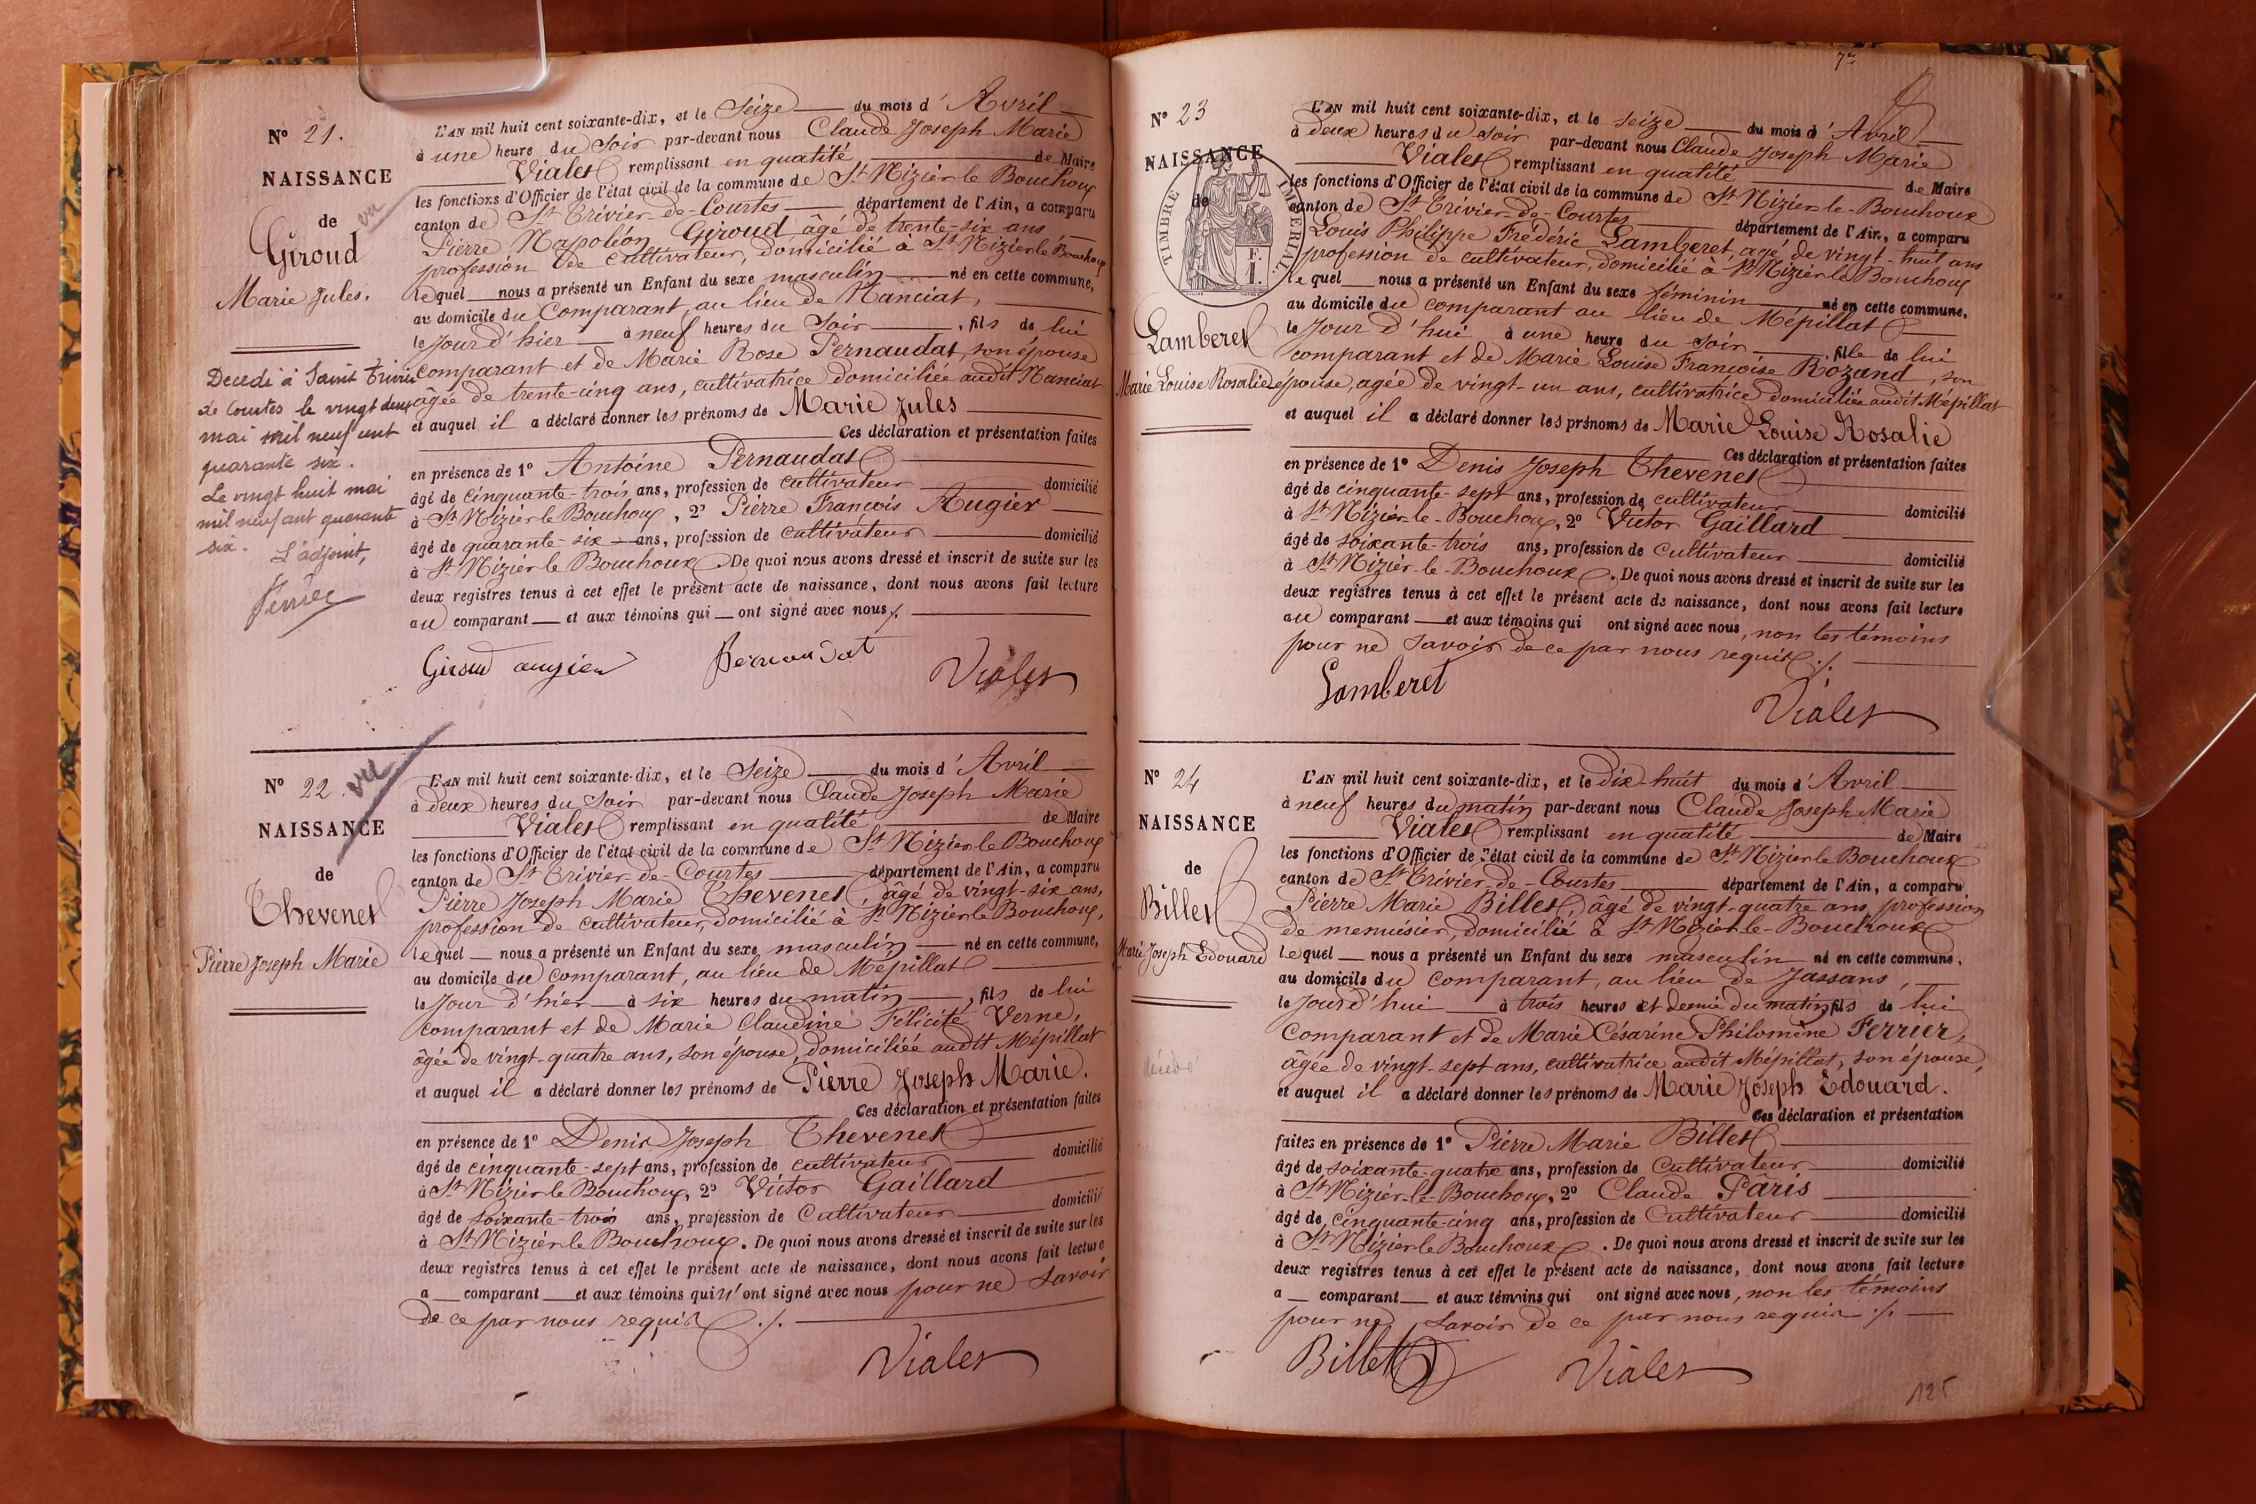 N° 21.
NAISSANCE
de
vu
Giroud
Marie Jules.
Décédé à Saint Trivier
de Courtes le vingt deux
mai mil neuf cent
quarante six.
Le vingt huit mai
mil neuf cent quarante
six. L'adjoint,
L'AN mil huit cent soixante-dix, et le Seize du mois d'Avril
à une heure du Soir par-devant nous Claude Joseph Marie
Vialet remplissant en qualité de Maire
les fonctions d'Officier de l'état civil de la commune de St Nizier le Bouchoux
canton de St Trivier-de-Courtes département de l'Ain, a comparu
Pierre Napoléon Giroud âgé de trente-six ans
profession de cultivateur, domicilié à St Nizier le Bouchoux
lequel nous a présenté un Enfant du sexe masculin né en cette commune,
au domicile du Comparant, au lieu de Nanciat,
le Jour d'hier à neuf heures du Soir, fils de lui
comparant et de Marie Rose Pernaudat, son épouse
âgée de trente-cinq ans, cultivatrice domiciliée audit Nanciat
et auquel il a déclaré donner les prénoms de Marie Jules
Ces déclaration et présentation faites
en présence de 1° Antoine Pernaudat
âgé de cinquante-trois ans, profession de cultivateur domicilié
à St Nizier le Bouchoux, 2° Pierre François Augier
âgé de quarante-six ans, profession de cultivateur domicilié
à St Nizier le Bouchoux. De quoi nous avons dressé et inscrit de suite sur les
deux registres tenus à cet effet le présent acte de naissance, dont nous avons fait lecture
au comparant et aux témoins qui ont signé avec nous ./.
Giroud augier Pernaudat Vialet
N° 22.
vu
NAISSANCE
de
Thevenet
Pierre Joseph Marie
L'AN mil huit cent soixante-dix, et le Seize du mois d'Avril
à deux heures du Soir par-devant nous Claude Joseph Marie
Vialet remplissant en qualité de Maire
les fonctions d'Officier de l'état civil de la commune de St Nizier le Bouchoux
canton de St Trivier-de-Courtes département de l'Ain, a comparu
Pierre Joseph Marie Thevenet, âgé de vingt-six ans,
profession de cultivateur, domicilié à St Nizier le Bouchoux,
lequel nous a présenté un Enfant du sexe masculin né en cette commune,
au domicile du comparant, au lieu de Mépillat
le Jour d'hier à six heures du matin, fils de lui
comparant et de Marie Claudine Félicité Verne,
âgée de vingt-quatre ans, son épouse, domiciliée audit Mépillat
et auquel il a déclaré donner les prénoms de Pierre Joseph Marie.
Ces déclaration et présentation faites
en présence de 1° Denis Joseph Thevenet
âgé de cinquante-sept ans, profession de cultivateur domicilié
à St Nizier le Bouchoux, 2° Victor Gaillard
âgé de soixante-trois ans, profession de Cultivateur domicilié
à St Nizier le Bouchoux. De quoi nous avons dressé et inscrit de suite sur les
deux registres tenus à cet effet le présent acte de naissance, dont nous avons fait lecture
a comparant et aux témoins qui n'ont signé avec nous pour ne savoir
de ce par nous requis ./.
Vialet
N° 23
NAISSANCE
de
TIMBRE IMPERIAL.
F.
1.
Lamberet
Marie Louise Rosalie
L'AN mil huit cent soixante-dix, et le seize du mois d'Avril
à deux heures du soir par-devant nous Claude Joseph Marie
Vialet remplissant en qualité de Maire
les fonctions d'Officier de l'état civil de la commune de St Nizier-le-Bouchoux
canton de St Trivier-de-Courtes département de l'Ain, a comparu
Louis Philippe Frédéric Lamberet, agé de vingt-huit ans
profession de cultivateur, domicilié à St Nizier le Bouchoux
lequel nous a présenté un Enfant du sexe féminin né en cette commune,
au domicile du comparant au lieu de Mépillat
le Jour d'hui à une heure du Soir, fille de lui
comparant et de Marie Louise Françoise Rozand, son
épouse, agée de vingt-un ans, cultivatrice domiciliée audit Mépillat
et auquel il a déclaré donner les prénoms de Marie Louise Rosalie
Ces déclaration et présentation faites
en présence de 1° Denis Joseph Thevenet
âgé de cinquante-sept ans, profession de cultivateur domicilié
à St Nizier-le-Bouchoux, 2° Victor Gaillard
âgé de soixante-trois ans, profession de Cultivateur domicilié
à St Nizier-le-Bouchoux. De quoi nous avons dressé et inscrit de suite sur les
deux registres tenus à cet effet le présent acte de naissance, dont nous avons fait lecture
au comparant et aux témoins qui ont signé avec nous, non les témoins
pour ne savoir de ce par nous requis ./.
Lamberet
Vialet
N° 24
NAISSANCE
de
Billet
Marie Joseph Edouard
L'AN mil huit cent soixante-dix, et le dix-huit du mois d'Avril
à neuf heures du matin par-devant nous Claude Joseph Marie
Vialet remplissant en qualité de Maire
les fonctions d'Officier de l'état civil de la commune de St Nizier le Bouchoux
canton de St Trivier-de-Courtes département de l'Ain, a comparu
Pierre Marie Billet, âgé de vingt-quatre ans, profession
de menuisier, domicilié à St Nizier-le-Bouchoux
lequel nous a présenté un Enfant du sexe masculin né en cette commune,
au domicile du comparant, au lieu de Jassans,
le Jour d'hui à trois heures et demie du matin fils de lui
Comparant et de Marie Césarine Philomène Ferrier,
âgée de vingt-sept ans, cultivatrice audit Mépillat, son épouse,
et auquel il a déclaré donner les prénoms de Marie Joseph Edouard.
Ces déclaration et présentation
faites en présence de 1° Pierre Marie Billet
âgé de soixante-quatre ans, profession de Cultivateur domicilié
à St Nizier-le-Bouchoux, 2° Claude Pâris
âgé de cinquante-cinq ans, profession de Cultivateur domicilié
à St Nizier le Bouchoux. De quoi nous avons dressé et inscrit de suite sur les
deux registres tenus à cet effet le présent acte de naissance, dont nous avons fait lecture
a comparant et aux témoins qui ont signé avec nous, non les témoins
pour ne savoir de ce par nous requis ./.
Billet Vialet
125